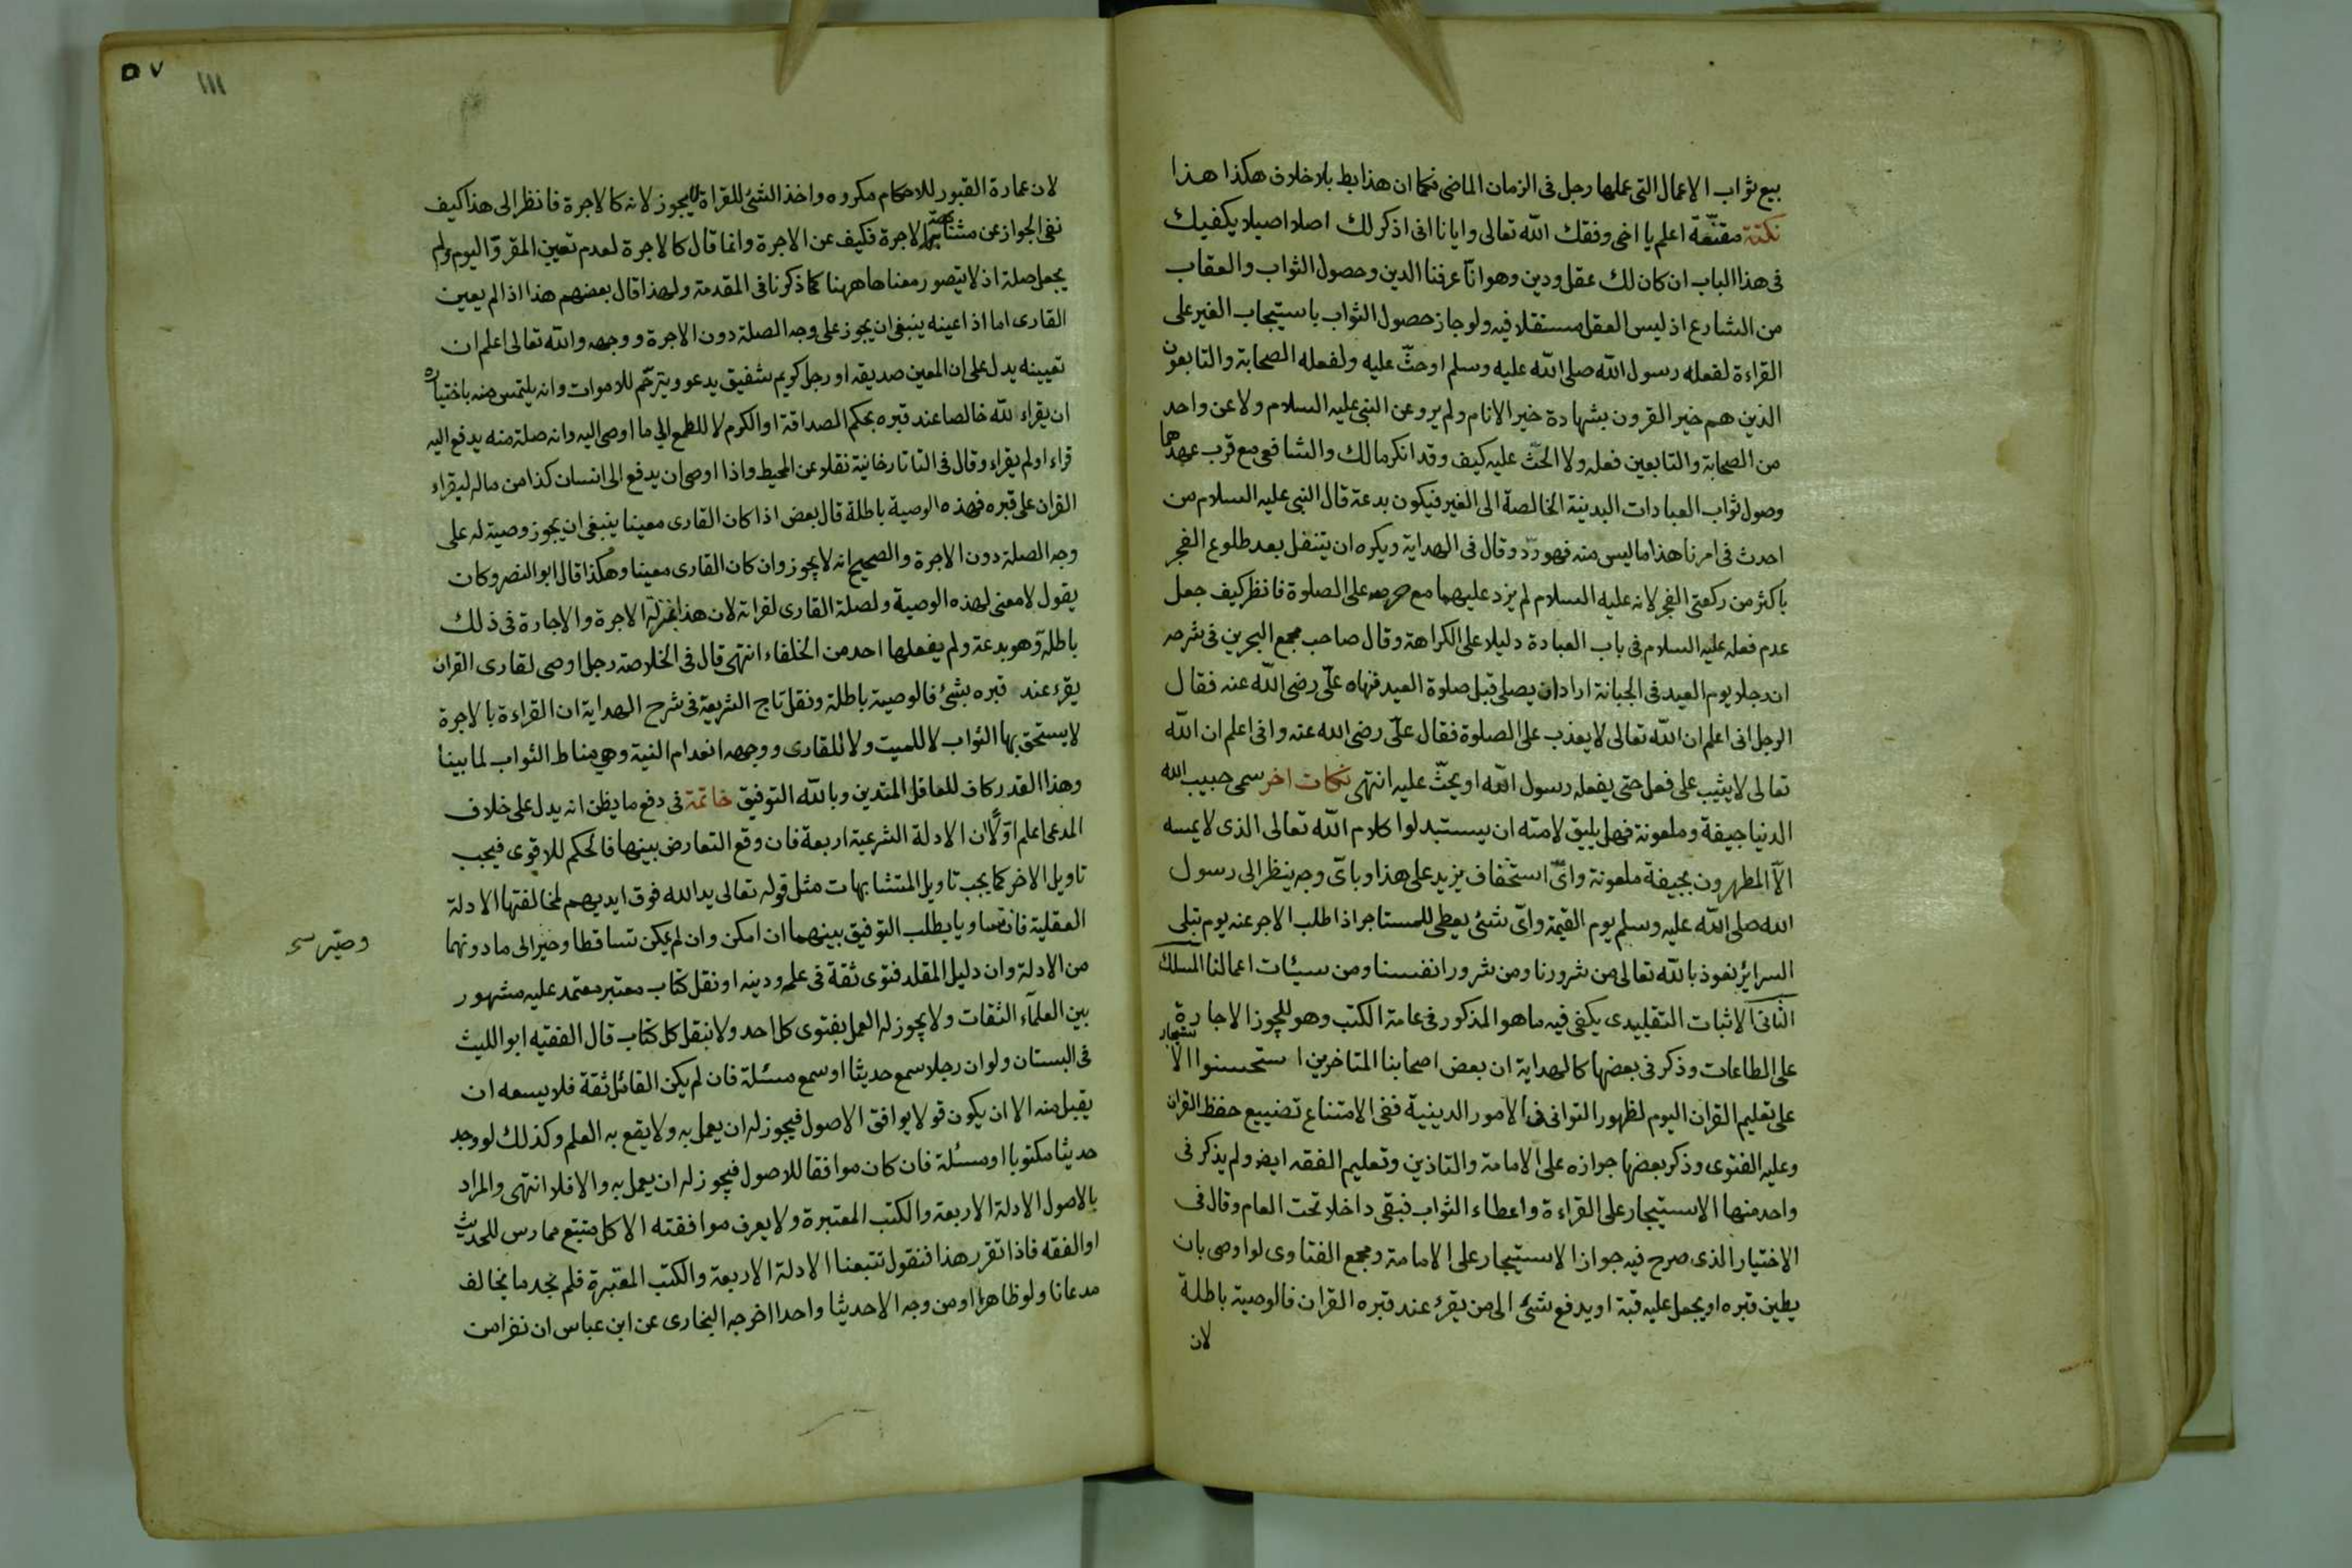 بيع ثواب الاعمال التى عملها رجل فى الزمان الماضى فكما ان هذا بط بلا خلاف هكذا هذا
نكتة مقنعة اعلم يا اخى وفقك الله تعالى وايانا انى اذكر لك اصلا اصيلا يكفيك
فى هذا الباب ان كان لك عقل ودين وهو انا عرفنا الدين وحصول الثواب والعقاب
من الشارع اذ ليس العقل مستقلا فيه ولو جاز حصول الثواب باستيجاب الغير على
القراءة لفعله رسول الله صلى الله عليه وسلم او حثّ عليه ولفعله الصحابة والتابعون
الذين هم خير القرون بشهادة خير الانام ولم يرو عن النبى عليه السلام ولا عن واحد
من الصحابة والتابعين فعله ولا الحثّ عليه كيف وقد انكر مالك والشافعى مع قرب عهدهما
وصول ثواب العبادات البدنية الخالصة الى الغير فيكون بدعة قال النبى عليه السلام من
احدث فى امرنا هذا ما ليس منه فهو ردّ وقال فى الهداية ويكره ان يتنفل بعد طلوع الفجر
باكثر من ركعتى الفجر لانه عليه السلام لم يزد عليهما مع حرصه على الصلوة فانظر كيف جعل
عدم فعله عليه السلام فى باب العبادة دليلا على الكراهة وقال صاحب مجمع البحرين فى شرحه
ان رجلا يوم العيد فى الجبانة اراد ان يصلى قبل صلوة العيد فنهاه علىّ رضى الله عنه فقال
الرجل انى اعلم ان الله تعالى لا يعذب على الصلوة فقال علىّ رضى الله عنه وانى اعلم ان الله
تعالى لا يثيب على فعل حتى يفعله رسول الله او يحثّ عليه انتهى نكات اخر سمى حبيب الله
الدنيا جيفة وملعونة فهل يليق لامته ان يستبدلوا كلام الله تعالى الذى لا يمسه
الا المطهرون بجيفة ملعونة واىّ استخفاف يزيد على هذا وباىّ وجه ينظر الى رسول
الله صلى الله عليه وسلم يوم القيمة واىّ شئ يعطى للمستاجر اذا طلب الاجر عنه يوم تبلى
السرائر نعوذ بالله تعالى من شرورنا ومن شرور انفسنا ومن سيئات اعمالنا المسلك
الثانى الاثبات التقليدى يكفى فيه ما هو المذكور فى عامة الكتب وهو لا يجوز الاجارة
على الطاعات وذكر فى بعضها كالهداية ان بعض اصحابنا المتاخرين استحسنوا الاستيجار
على تعليم القران اليوم لظهور التوانى فى الامور الدينية ففى الامتناع تضييع حفظ القران
وعليه الفتوى وذكر بعضها جوازه على الامامة والتاذين وتعليم الفقه ايضا ولم يذكر فى
واحد منها الاستيجار على القراءة واعطاء الثواب فبقى داخلا تحت العام وقال فى
الاختيار الذى صرح فيه جواز الاستيجار على الامامة ومجمع الفتاوى لو اوصى بان
يطين قبره او يجعل عليه قبة او يدفع شئ الى من يقرئ عند قبره القران فالوصية باطلة
لان
لان عمارة القبور للاحكام مكروه واخذ الشئ للقراة لا يجوز لانه كالاجرة فانظر الى هذا كيف
نفى الجواز عن مشابهة الاجرة فكيف عن الاجرة وانما قال كالاجرة لعدم تعيين المقروّ اليوم ولم
يجعل صلة اذ لا يتصور معناها ههنا كما ذكرنا فى المقدمة ولهذا قال بعضهم هذا اذا لم يعين
القارى اما اذا عينه ينبغى ان يجوز على وجه الصلة دون الاجرة ووجهه والله تعالى اعلم ان
تعيينه يدل على ان المعين صديقه او رجل كريم شفيق يدعو ويترحّم للاموات وانه يلتمس منه باختياره
ان يقراء لله خالصا عند قبره بحكم الصداقة او الكرم لا للطمع الى ما اوصى اليه وانه صلة منه يدفع اليه
قراء او لم يقراء وقال فى التاتارخانية نقلا عن المحيط واذا اوصى ان يدفع الى انسان كذا من ماله ليقراء
القران على قبره فهذه الوصية باطلة قال بعض اذا كان القارى معينا ينبغى ان يجوز وصية له على
وجه الصلة دون الاجرة والصحيح انه لا يجوز وان كان القارى معينا وهكذا قال ابو النصر وكان
يقول لا معنى لهذه الوصية ولصلة القارى لقراته لان هذا بمنزلة الاجرة والاجارة فى ذلك
باطلة وهو بدعة ولم يفعلها احد من الخلفاء انتهى قال فى الخلاصة رجل اوصى لقارى القران
يقرء عند قبره بشئ فالوصية باطلة ونقل تاج الشريعة فى شرح الهداية ان القراءة بالاجرة
لا يستحق بها الثواب لا للميت ولا للقارى ووجهه انعدام النية وهى مناط الثواب لما بينا
وهذا القدر كاف للعاقل المتدين وبالله التوفيق خاتمة فى دفع ما يظن انه يدل على خلاف
المدعى اعلم اوّلا ان الادلة الشرعية اربعة فان وقع التعارض بينها فالحكم للاقوى فيجب
تاويل الاخر كما يجب تاويل المتشابهات مثل قوله تعالى يد الله فوق ايديهم لمخالفتها الادلة
العقلية فان تساويا يطلب التوفيق بينهما ان امكن وان لم يمكن تساقطا وصير الى ما دونهما
وصير
من الادلة وان دليل المقلد فتوى ثقة فى علمه ودينه او نقل كتاب معتبر معتمد عليه مشهور
بين العلمآء الثقات ولا يجوز له العمل بفتوى كل احد ولا بنقل كل كتاب قال الفقيه ابو الليث
فى البستان ولو ان رجلا سمع حديثا او سمع مسئلة فان لم يكن القائل ثقة فلا يسعه ان
يقبل منه الا ان يكون قولا يوافق الاصول فيجوز له ان يعمل به ولا يقع به العلم وكذلك لو وجد
حديثا مكتوبا او مسئلة فان كان موافقا للاصول فيجوز له ان يعمل به والا فلا انتهى والمراد
بالاصول الادلة الاربعة والكتب المعتبرة ولا يعرف موافقته الا كل متتبع ممارس للحديث
او الفقه فاذا تقرر هذا فنقول تتبعنا الادلة الاربعة والكتب المعتبرة فلم نجد ما يخالف
مدعانا ولو ظاهرا او من وجه الا حديثا واحدا اخرجه البخارى عن ابن عباس ان نفرا من